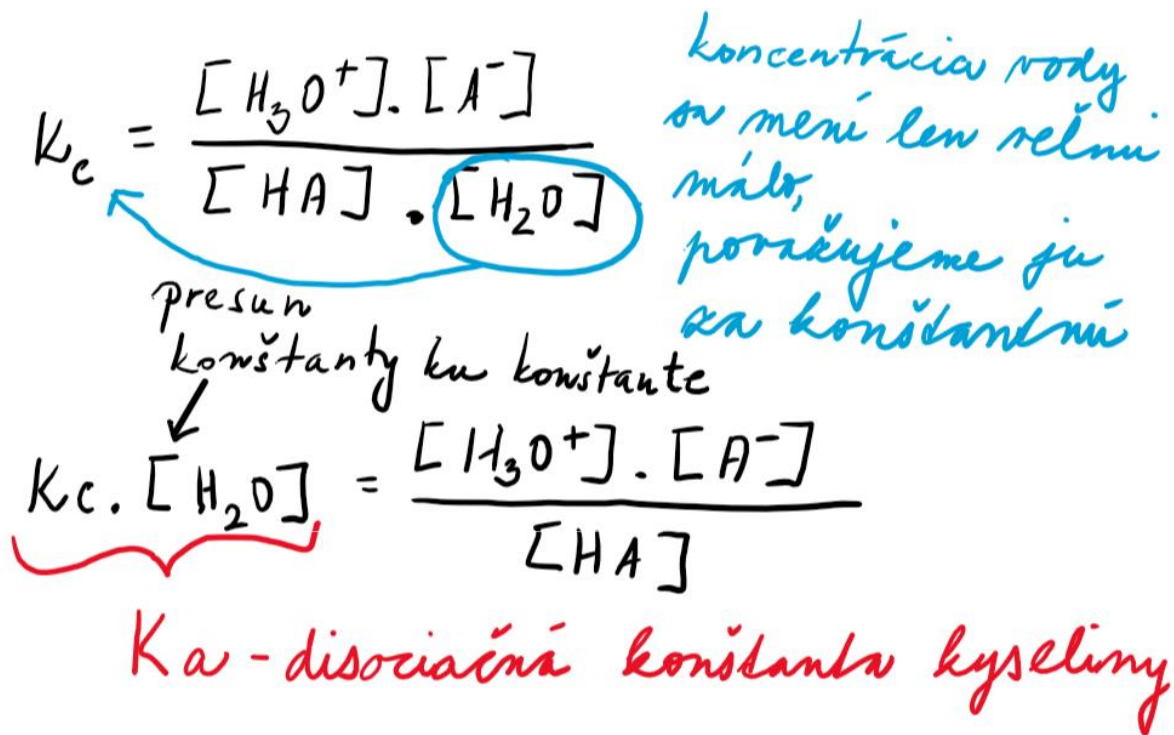 Kc = [H₃O⁺].[A⁻] / [HA].[H₂O]
koncentrácia vody
sa mení len veľmi
málo,
považujeme ju
za konštantnú
presun
konštanty ku konštante
Kc.[H₂O] = [H₃O⁺].[A⁻] / [HA]
Ka - disociačná konštanta kyseliny